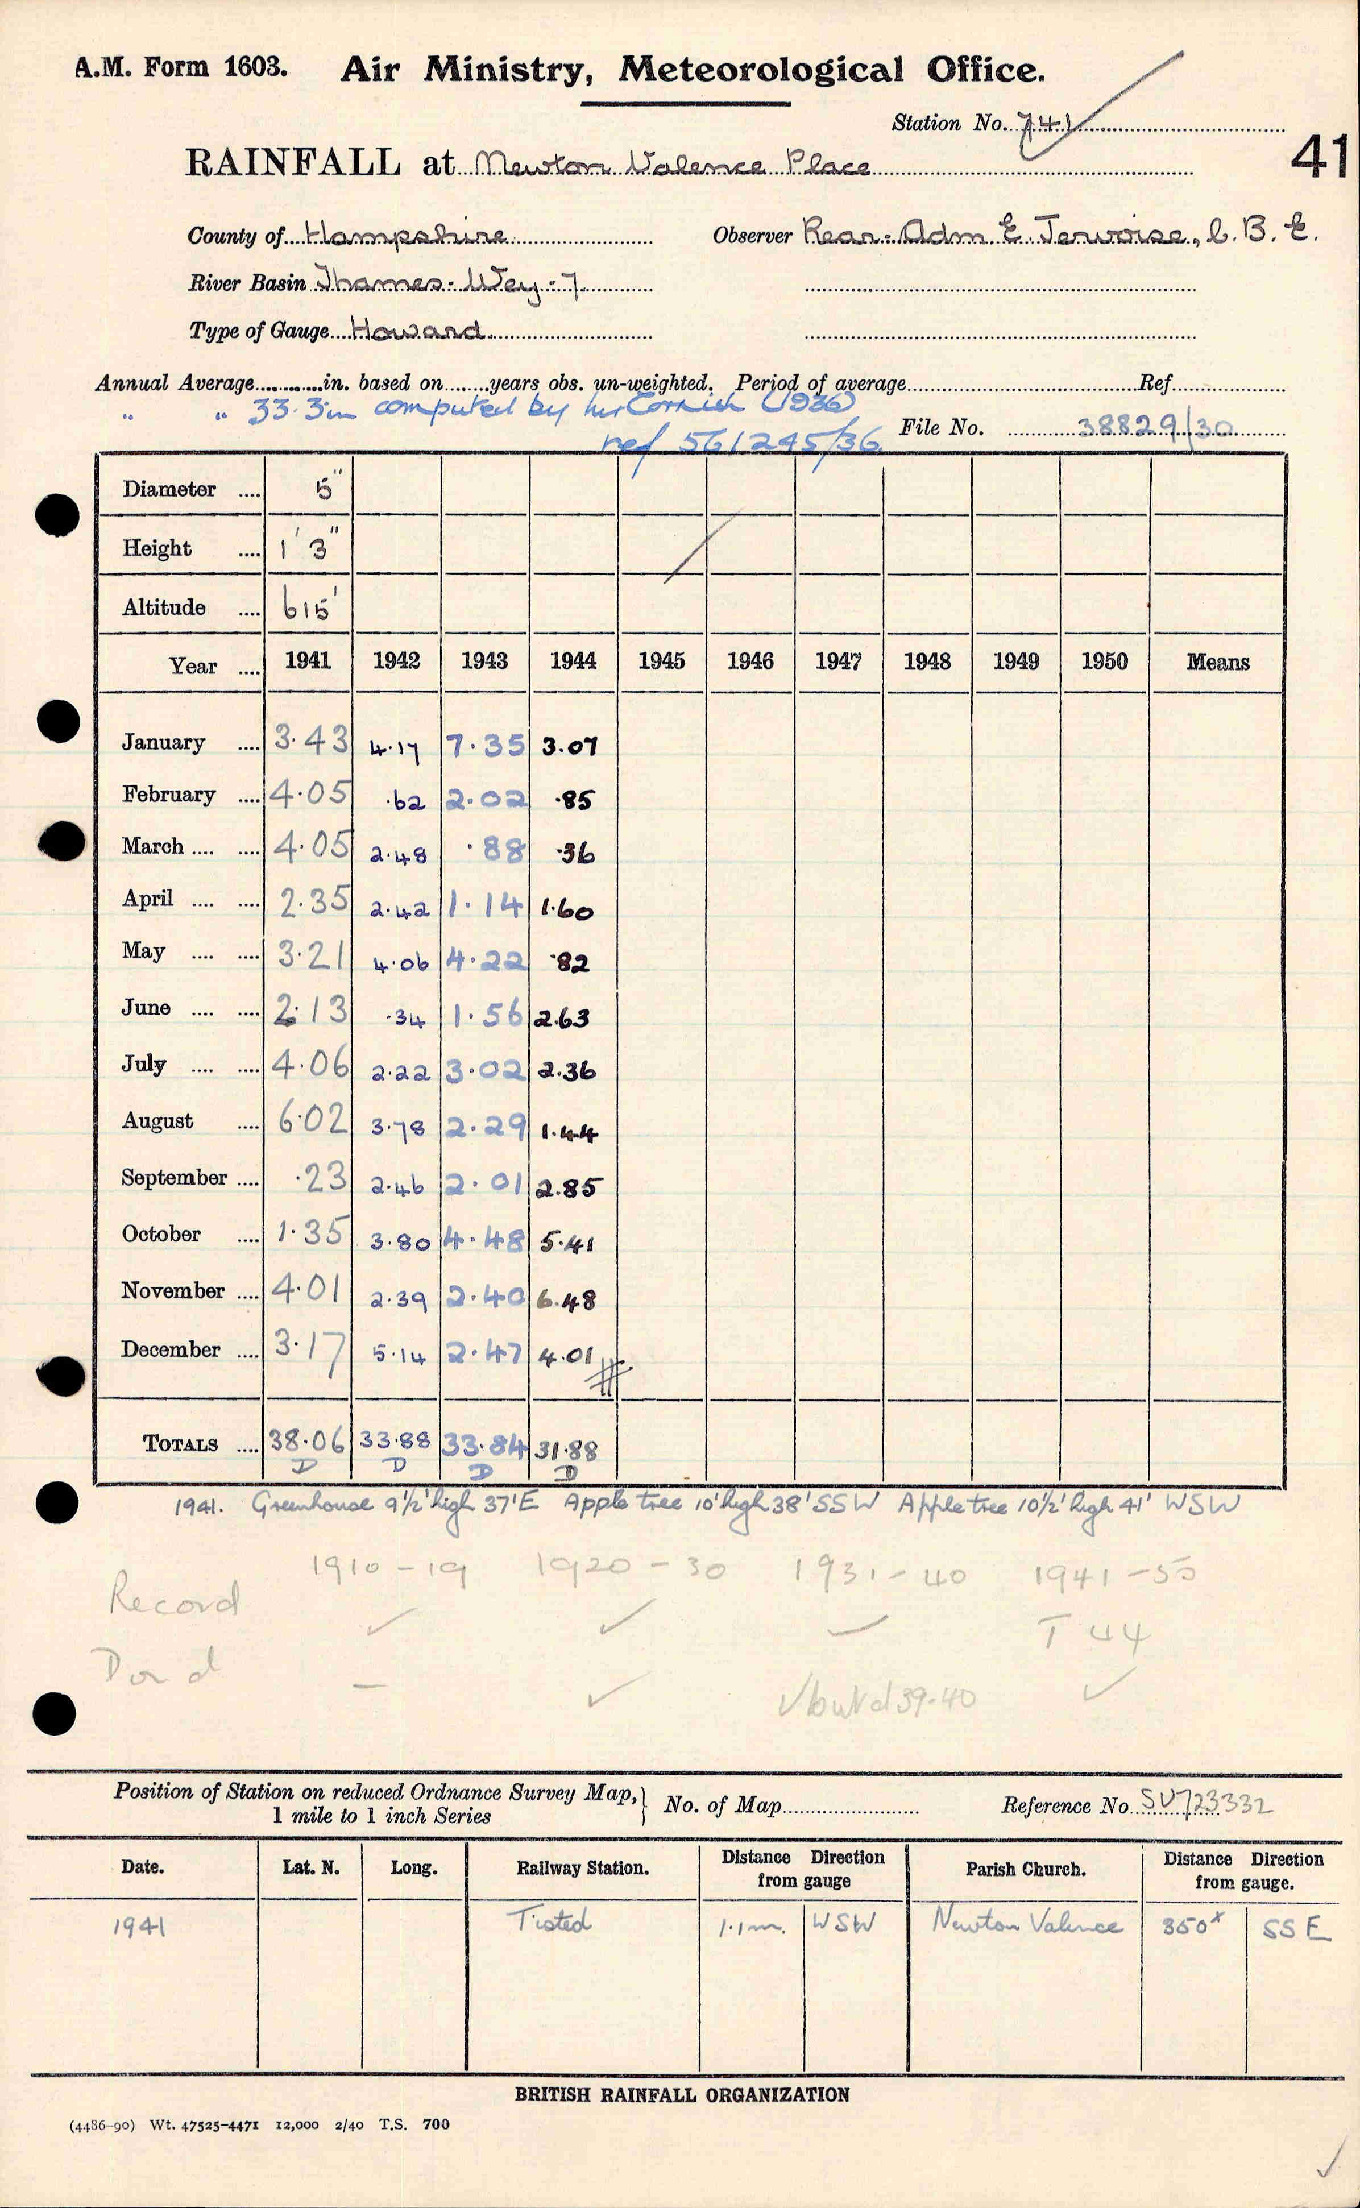 A.M. Form 1603. Air Ministry, Meteorological Office.
Station No. 741
41
RAINFALL at Newton Valence Place
County of Hampshire Observer Rear-Adm E. Jervoise, C.B.E.
River Basin Thames-Wey-7
Type of Gauge Howard
Annual Average............in. based on.......years obs. un-weighted. Period of average Ref.
" " 33.3in computed by Mr Cornish (1936)
ref 561245/36 File No. 38829/30
Diameter .... 5"
Height .... 1' 3"
Altitude .... 615'
Year .... 1941 1942 1943 1944 1945 1946 1947 1948 1949 1950 Means
January .... 3.43 4.17 7.35 3.07
February .... 4.05 .62 2.02 .85
March .... .... 4.05 2.48 .88 .36
April .... .... 2.35 2.42 1.14 1.60
May .... .... 3.21 4.06 4.22 .82
June .... .... 2.13 .34 1.56 2.63
July .... .... 4.06 2.22 3.02 2.36
August .... 6.02 3.78 2.29 1.44
September .... .23 2.46 2.01 2.85
October .... 1.35 3.80 4.48 5.41
November .... 4.01 2.39 2.40 6.48
December .... 3.17 5.14 2.47 4.01
TOTALS .... 38.06 33.88 33.84 31.88
D D D D
1941. Greenhouse 9½' high 37' E Apple tree 10' high 38' SSW Apple tree 10½' high 41' WSW
1910-19 1920-30 1931-40 1941-50
Record ✓ ✓ ✓ T 44
D or d - ✓ ✓ but d 39-40 ✓
Position of Station on reduced Ordnance Survey Map, } No. of Map Reference No. SU723332
1 mile to 1 inch Series
Date. Lat. N. Long. Railway Station. Distance from gauge Direction Parish Church. Distance from gauge. Direction
1941 Tisted 1.1m. WSW Newton Valence 350x SSE
BRITISH RAINFALL ORGANIZATION
(4486-90) Wt. 47525-4471 12,000 2/40 T.S. 700